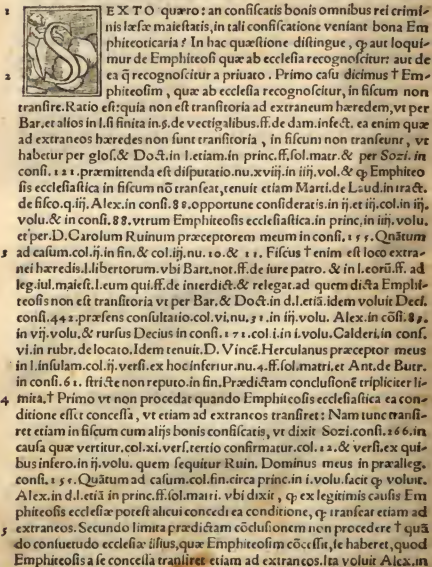 1 SEXTO quæro: an confiscatis bonis omnibus rei crimi-
nis læsæ maiestatis, in tali confiscatione veniant bona Em
phiteoticaria? In hac quæstione distingue, ꝙ aut loqui-
mur de Emphiteosi quæ ab ecclesia recognoscitur: aut de
2 ea q̄ recognoscitur a priuato. Primo casu dicimus † Em-
phiteosim, quæ ab ecclesia recognoscitur, in fiscum non
transire. Ratio est: quia non est transitoria ad extraneum hæredem, vt per
Bar. et alios in l. si finita in.§. de vectigalibus. ff. de dam. infect. ea enim quæ
ad extraneos hæredes non sunt transitoria, in fiscum non transeunt, vt
habetur per glos. & Doct. in l. etiam. in princ. ff. sol. matr. & per Sozi. in
consi. 121. præmittenda est disputatio. nu. xviij. in iiij. vol. & ꝙ Emphiteo
sis ecclesiastica in fiscum nō transeat, tenuit etiam Marti. de Laud. in tract.
de fisco. q. iij. Alex. in consi. 88. opportune consideratis. in ij. et iij. col. in iij.
volu. & in consi. 88. vtrum Emphiteosis ecclesiastica. in princ. in iiij. volu.
et per. D. Carolum Ruinum præceptorem meum in consi. 155. Quātum
3 ad casum. col. ij. in fin. & col. iij. nu. 10. & 11. Fiscus † enim est loco extra-
nei hæredis. l. libertorum. vbi Bart. not. ff. de iure patro. & in l. eorū. ff. ad
leg. iul. maiest. l. eum qui. ff. de interdict. & relegat. ad quem dicta Emphi-
teosis non est transitoria vt per Bar. & Doct. in d. l. etiā. idem voluit Deci.
consi. 442. præsens consultatio. col. vi. nu. 31. in iij. volu. Alex. in cōsi. 89.
in vij. volu. & rursus Decius in consi. 171. col. i. in i. volu. Calderi. in consi.
vi. in rubr. de locato. Idem tenuit. D. Vincē. Herculanus præceptor meus
in l. insulam. col. ij. versi. ex hoc infertur. nu. 4. ff. sol. matri. et Ant. de Butr.
in consi. 61. stricte non reputo. in fin. Prædictam conclusionē tripliciter li-
4 mita. † Primo vt non procedat quando Emphiteosis ecclesiastica ea con-
ditione esset concessa, vt etiam ad extraneos transiret: Nam tunc transi-
ret etiam in fiscum cum alijs bonis confiscatis, vt dixit Sozi. consi. 266. in
causa quæ vertitur. col. xi. vers. tertio confirmatur. col. 12. & versi. ex qui-
bus infero. in ij. volu. quem sequitur Ruin. Dominus meus in præalleg.
consi. 155. Quātum ad casum. col. fin. circa princ. in i. volu. facit ꝙ voluit.
Alex. in d. l. etiā in princ. ff. sol. matri. vbi dixit, ꝙ ex legitimis causis Em
phiteosis ecclesiæ potest alicui concedi ea conditione, ꝙ transeat etiam ad
5 extraneos. Secundo limita prædictam cōclusionem non procedere † quā
do consuetudo ecclesiæ illius, quæ Emphiteosim cōcessit, se haberet, quod
Emphiteosis a se concessa transiret etiam ad extraneos. Ita voluit Alex. in